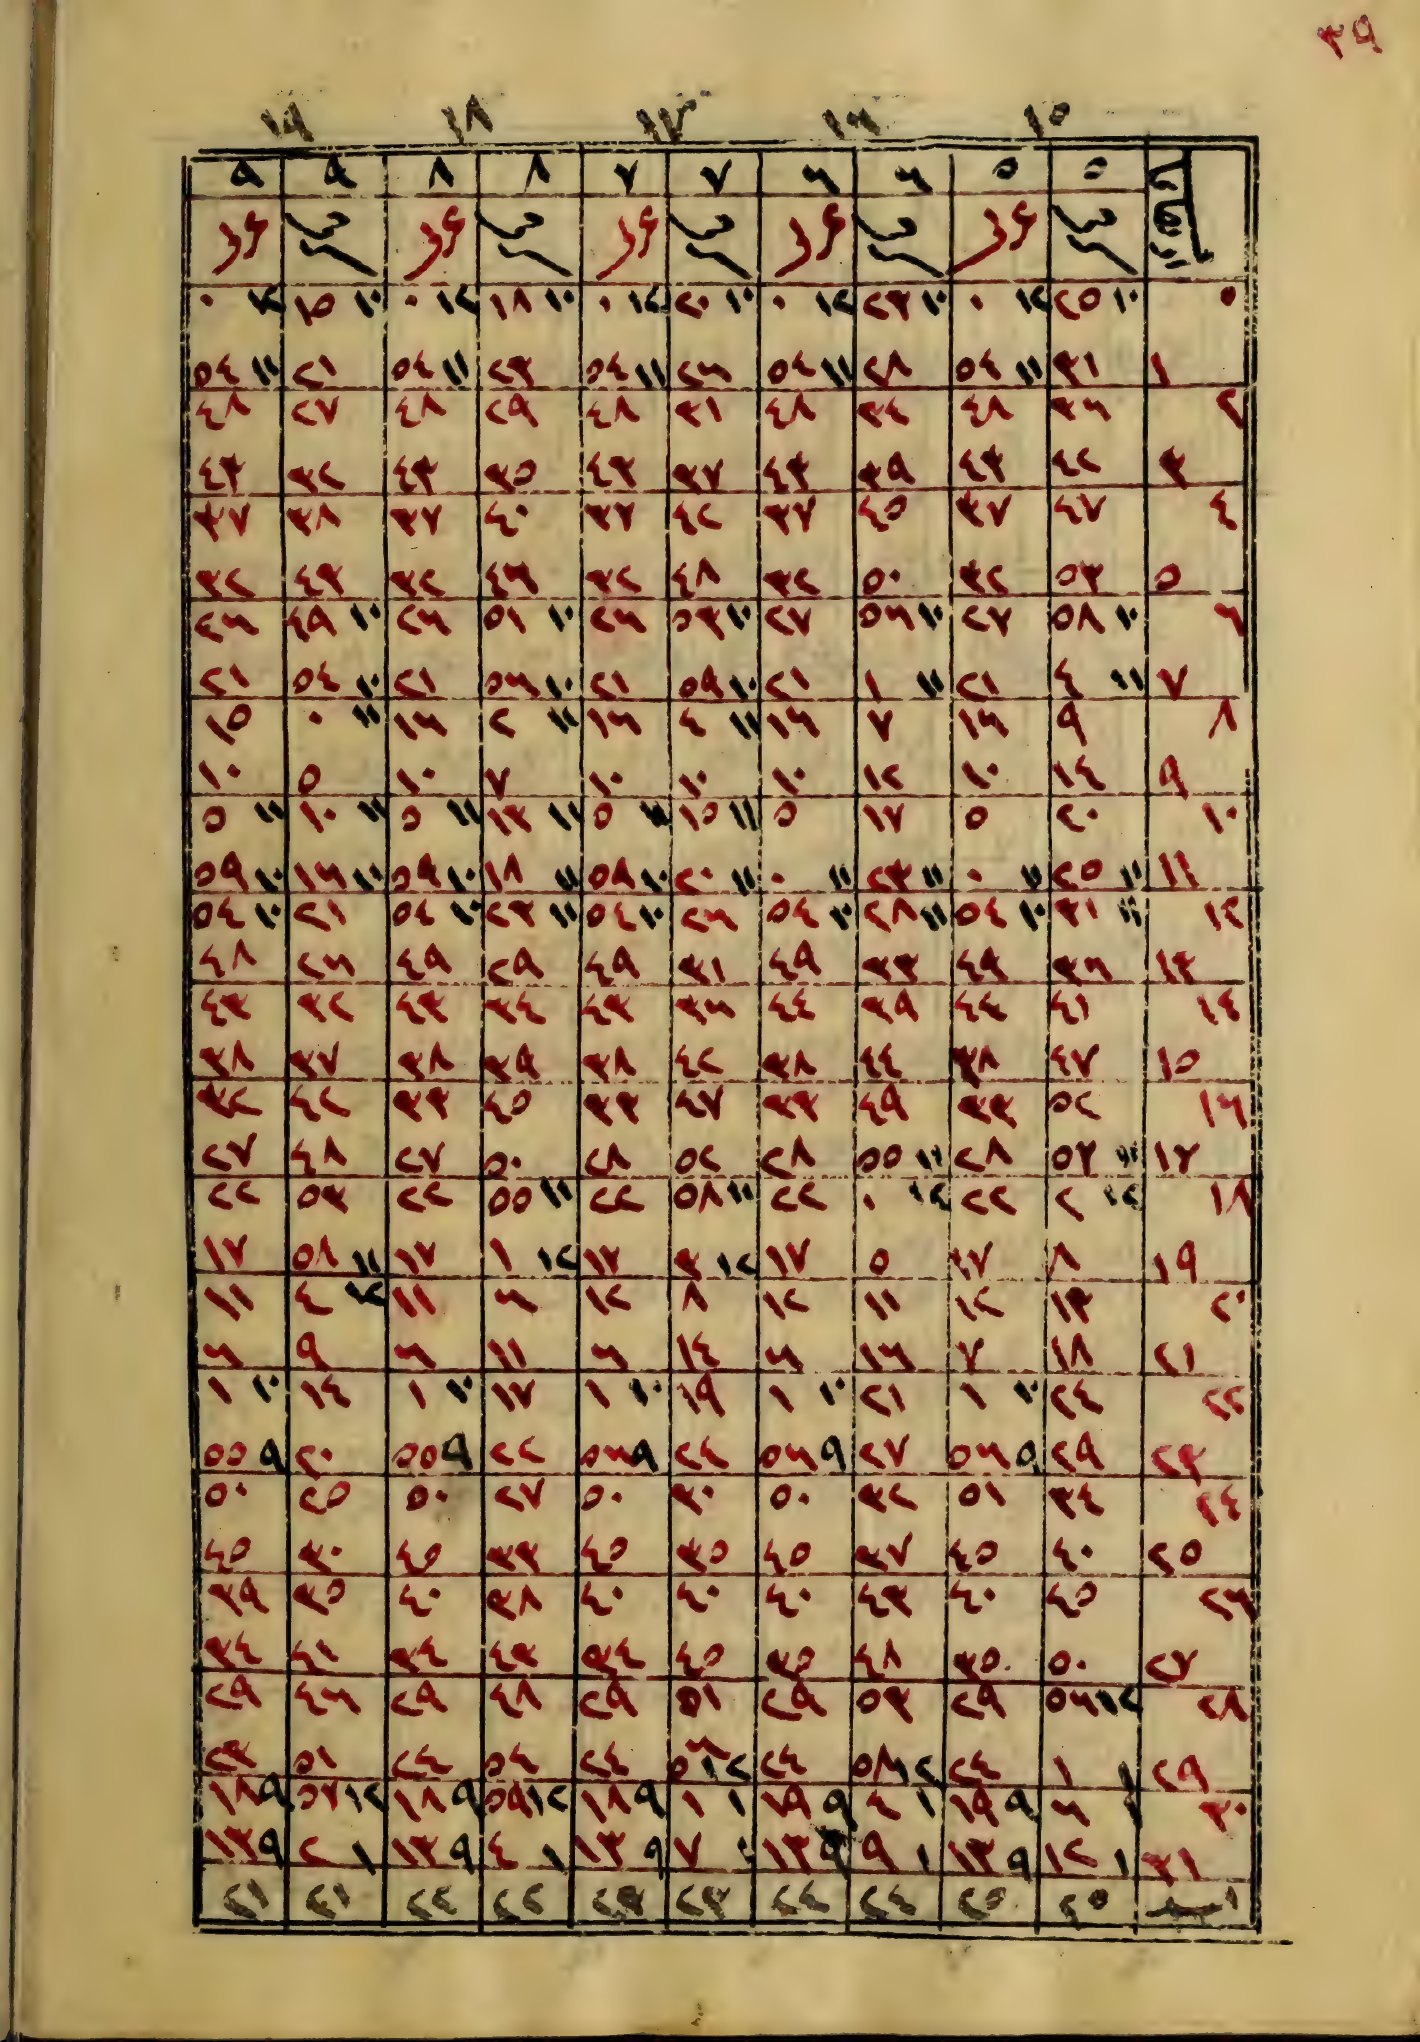 ٣٩
١٥ ١٦ ١٧ ١٨ ١٩
٥ ٥ ٦ ٦ ٧ ٧ ٨ ٨ ٩ ٩
٠ ١٠ ٢٥ ١٢ ٠ ١٠ ٢٣ ١٢ ٠ ١٠ ٢٠ ١٢ ٠ ١٠ ١٨ ١٢ ٠ ١٠ ١٥ ١٢ ٠
١ ٣١ ١١ ٥٤ ٢٨ ١١ ٥٤ ٢٦ ١١ ٥٤ ٢٣ ١١ ٥٤ ٢١ ١١ ٥٤
٢ ٣٦ ٤٨ ٣٤ ٤٨ ٣١ ٤٨ ٢٩ ٤٨ ٢٧ ٤٨
٣ ٤٢ ٤٣ ٣٩ ٤٣ ٣٧ ٤٣ ٣٥ ٤٣ ٣٢ ٤٣
٤ ٤٧ ٣٧ ٤٥ ٣٧ ٤٢ ٣٧ ٤٠ ٣٧ ٣٨ ٣٧
٥ ٥٣ ٣٢ ٥٠ ٣٢ ٤٨ ٣٢ ٤٦ ٣٢ ٤٣ ٣٢
٦ ١٠ ٥٨ ٢٧ ١٠ ٥٦ ٢٧ ١٠ ٥٣ ٢٦ ١٠ ٥١ ٢٦ ١٠ ٤٩ ٢٦
٧ ١١ ٤ ٢١ ١١ ١ ٢١ ١٠ ٥٩ ٢١ ١٠ ٥٦ ٢١ ١٠ ٥٤ ٢١
٨ ٩ ١٦ ٧ ١٦ ١١ ٤ ١٦ ١١ ٢ ١٦ ١١ ٠ ١٥
٩ ١٤ ١٠ ١٢ ١٠ ١٠ ١٠ ٧ ١٠ ٥ ١٠
١٠ ٢٠ ٥ ١٧ ٥ ١١ ١٥ ١١ ٥ ١١ ١٣ ١١ ٥ ١١ ١٠ ١١ ٥
١١ ١١ ٢٥ ١١ ٠ ١١ ٢٣ ١١ ٠ ١١ ٢٠ ١٠ ٥٩ ١١ ١٨ ١٠ ٥٩ ١١ ١٦ ١٠ ٥٩
١٢ ١١ ٣١ ١٠ ٥٤ ١١ ٢٨ ١٠ ٥٤ ٢٦ ١٠ ٥٤ ١١ ٢٣ ١٠ ٥٤ ٢١ ١٠ ٥٤
١٣ ٣٦ ٤٩ ٣٣ ٤٩ ٣١ ٤٩ ٢٩ ٤٩ ٢٦ ٤٨
١٤ ٤١ ٤٤ ٣٩ ٤٤ ٣٦ ٤٣ ٣٤ ٤٣ ٣٢ ٤٣
١٥ ٤٧ ٣٨ ٤٤ ٣٨ ٤٢ ٣٨ ٣٩ ٣٨ ٣٧ ٣٨
١٦ ٥٢ ٣٣ ٤٩ ٣٣ ٤٧ ٣٣ ٤٥ ٣٣ ٤٢ ٣٢
١٧ ١١ ٥٧ ٢٨ ١١ ٥٥ ٢٨ ٥٢ ٢٨ ٥٠ ٢٧ ٤٨ ٢٧
١٨ ١٢ ٢ ٢٢ ١٢ ٠ ٢٢ ١١ ٥٨ ٢٢ ١١ ٥٥ ٢٢ ٥٣ ٢٢
١٩ ٨ ١٧ ٥ ١٧ ١٢ ٣ ١٧ ١٢ ١ ١٧ ١١ ٥٨ ١٧
٢٠ ١٣ ١٢ ١١ ١٢ ٨ ١٢ ٦ ١١ ١٢ ٤ ١١
٢١ ١٨ ٧ ١٦ ٦ ١٤ ٦ ١١ ٦ ٩ ٦
٢٢ ٢٤ ١٠ ١ ٢١ ١٠ ١ ١٩ ١٠ ١ ١٧ ١٠ ١ ١٤ ١٠ ١
٢٣ ٢٩ ٩ ٥٦ ٢٧ ٩ ٥٦ ٢٤ ٩ ٥٦ ٢٢ ٩ ٥٥ ٢٠ ٩ ٥٥
٢٤ ٣٤ ٥١ ٣٢ ٥٠ ٣٠ ٥٠ ٢٧ ٥٠ ٢٥ ٥٠
٢٥ ٤٠ ٤٥ ٣٧ ٤٥ ٣٥ ٤٥ ٣٣ ٤٥ ٣٠ ٤٥
٢٦ ٤٥ ٤٠ ٤٣ ٤٠ ٤٠ ٤٠ ٣٨ ٤٠ ٣٥ ٣٩
٢٧ ٥٠ ٣٥ ٤٨ ٣٥ ٤٥ ٣٤ ٤٣ ٣٤ ٤١ ٣٤
٢٨ ١٢ ٥٦ ٢٩ ٥٣ ٢٩ ٥١ ٢٩ ٤٨ ٢٩ ٤٦ ٢٩
٢٩ ١ ١ ٢٤ ١٢ ٥٨ ٢٤ ١٢ ٥٦ ٢٤ ٥٤ ٢٤ ٥١ ٢٣
٣٠ ١ ٦ ٩ ١٩ ١ ٤ ٩ ١٩ ١ ١ ٩ ١٨ ١٢ ٥٩ ٩ ١٨ ١٢ ٥٧ ٩ ١٨
٣١ ١ ١٢ ٩ ١٣ ١ ٩ ٩ ١٣ ٧ ٩ ١٣ ١ ٤ ٩ ١٣ ١ ٢ ٩ ١٣
٢٥ ٢٥ ٢٤ ٢٤ ٢٣ ٢٣ ٢٢ ٢٢ ٢١ ٢١